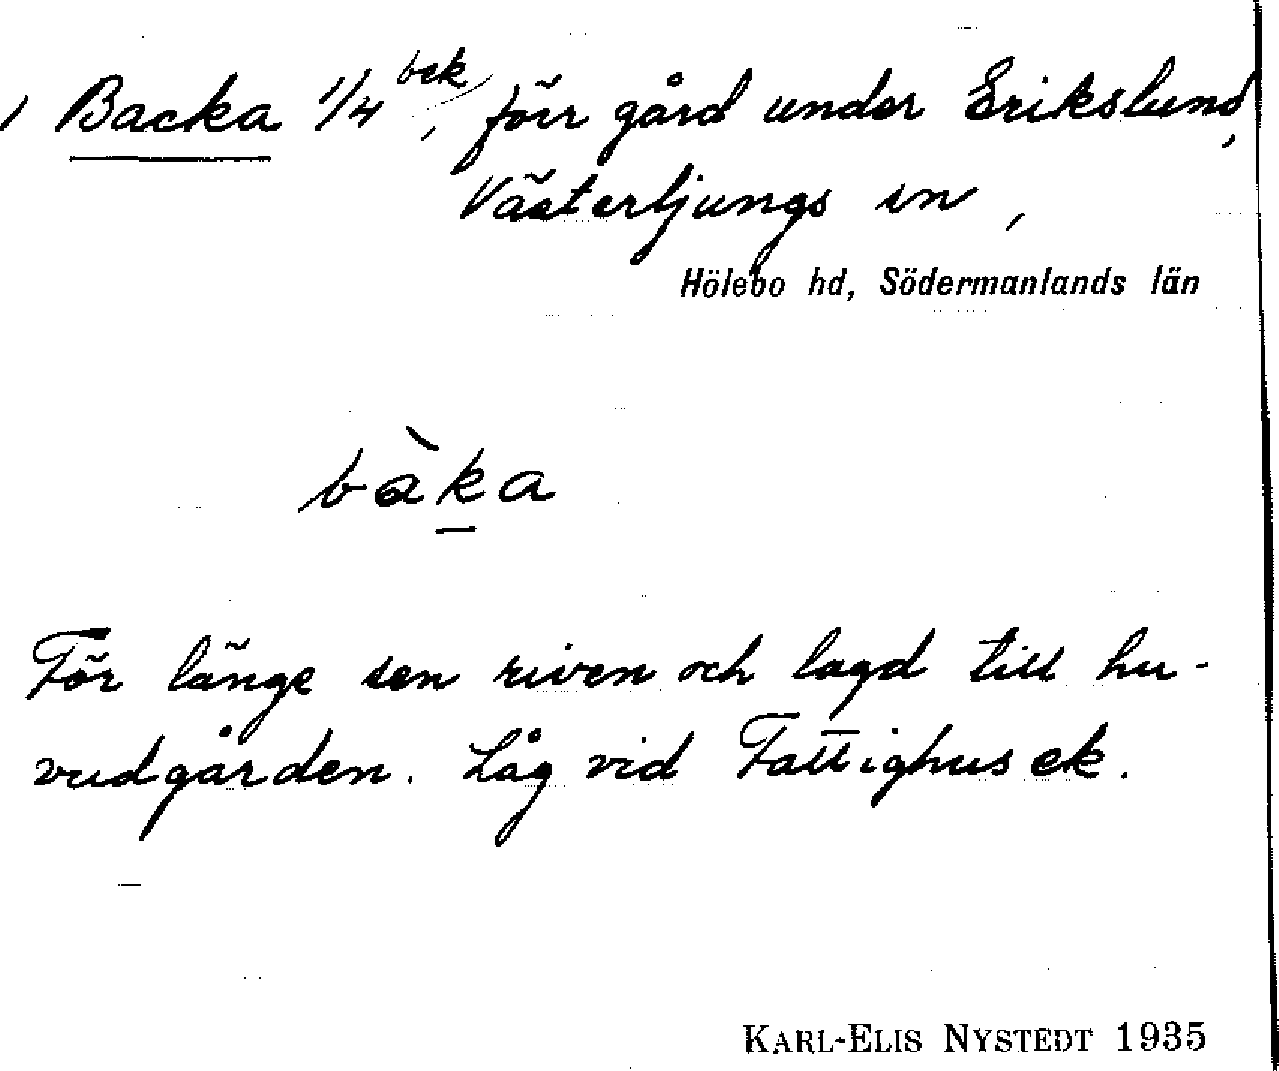 Backa 1/4 bek, förr gård under Erikslund,
Västerljungs sn,
Hölebo hd, Södermanlands län
bàka
För länge sen riven och lagd till hu-
vudgården. Låg vid Fattighusek.
KARL-ELIS NYSTEDT 1935